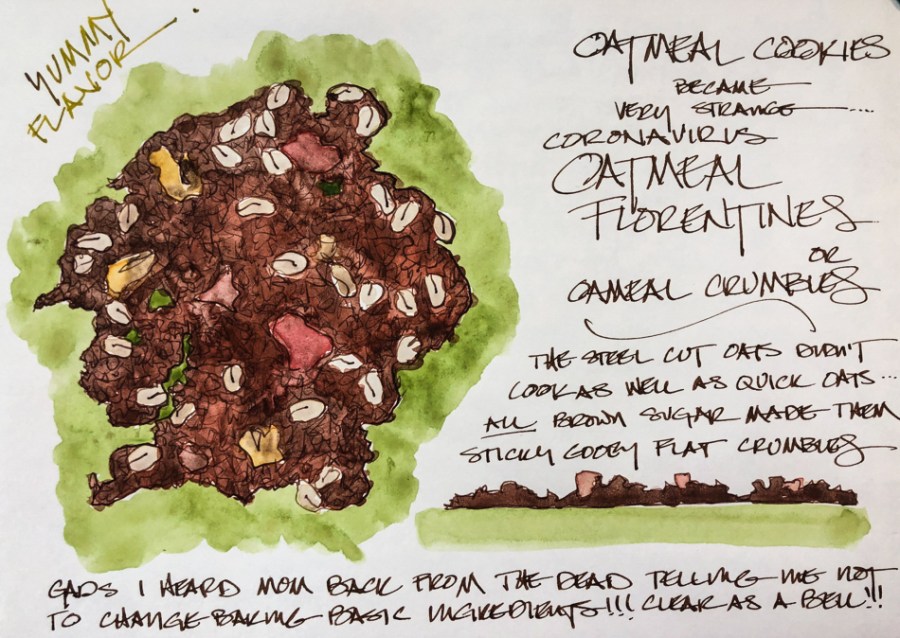 YUMMY
FLAVOR
OATMEAL COOKIES
BECAME
VERY STRANGE ....
CORONAVIRUS
OATMEAL
FLORENTINES
OR
OAMEAL CRUMBLES
THE STEEL CUT OATS DIDN'T
COOK AS WELL AS QUICK OATS...
ALL BROWN SUGAR MADE THEM
STICKY GOOEY FLAT CRUMBLES
GADS I HEARD MOM BACK FROM THE DEAD TELLING ME NOT
TO CHANGE BAKING BASIC INGREDIENTS!!! CLEAR AS A BELL!!!